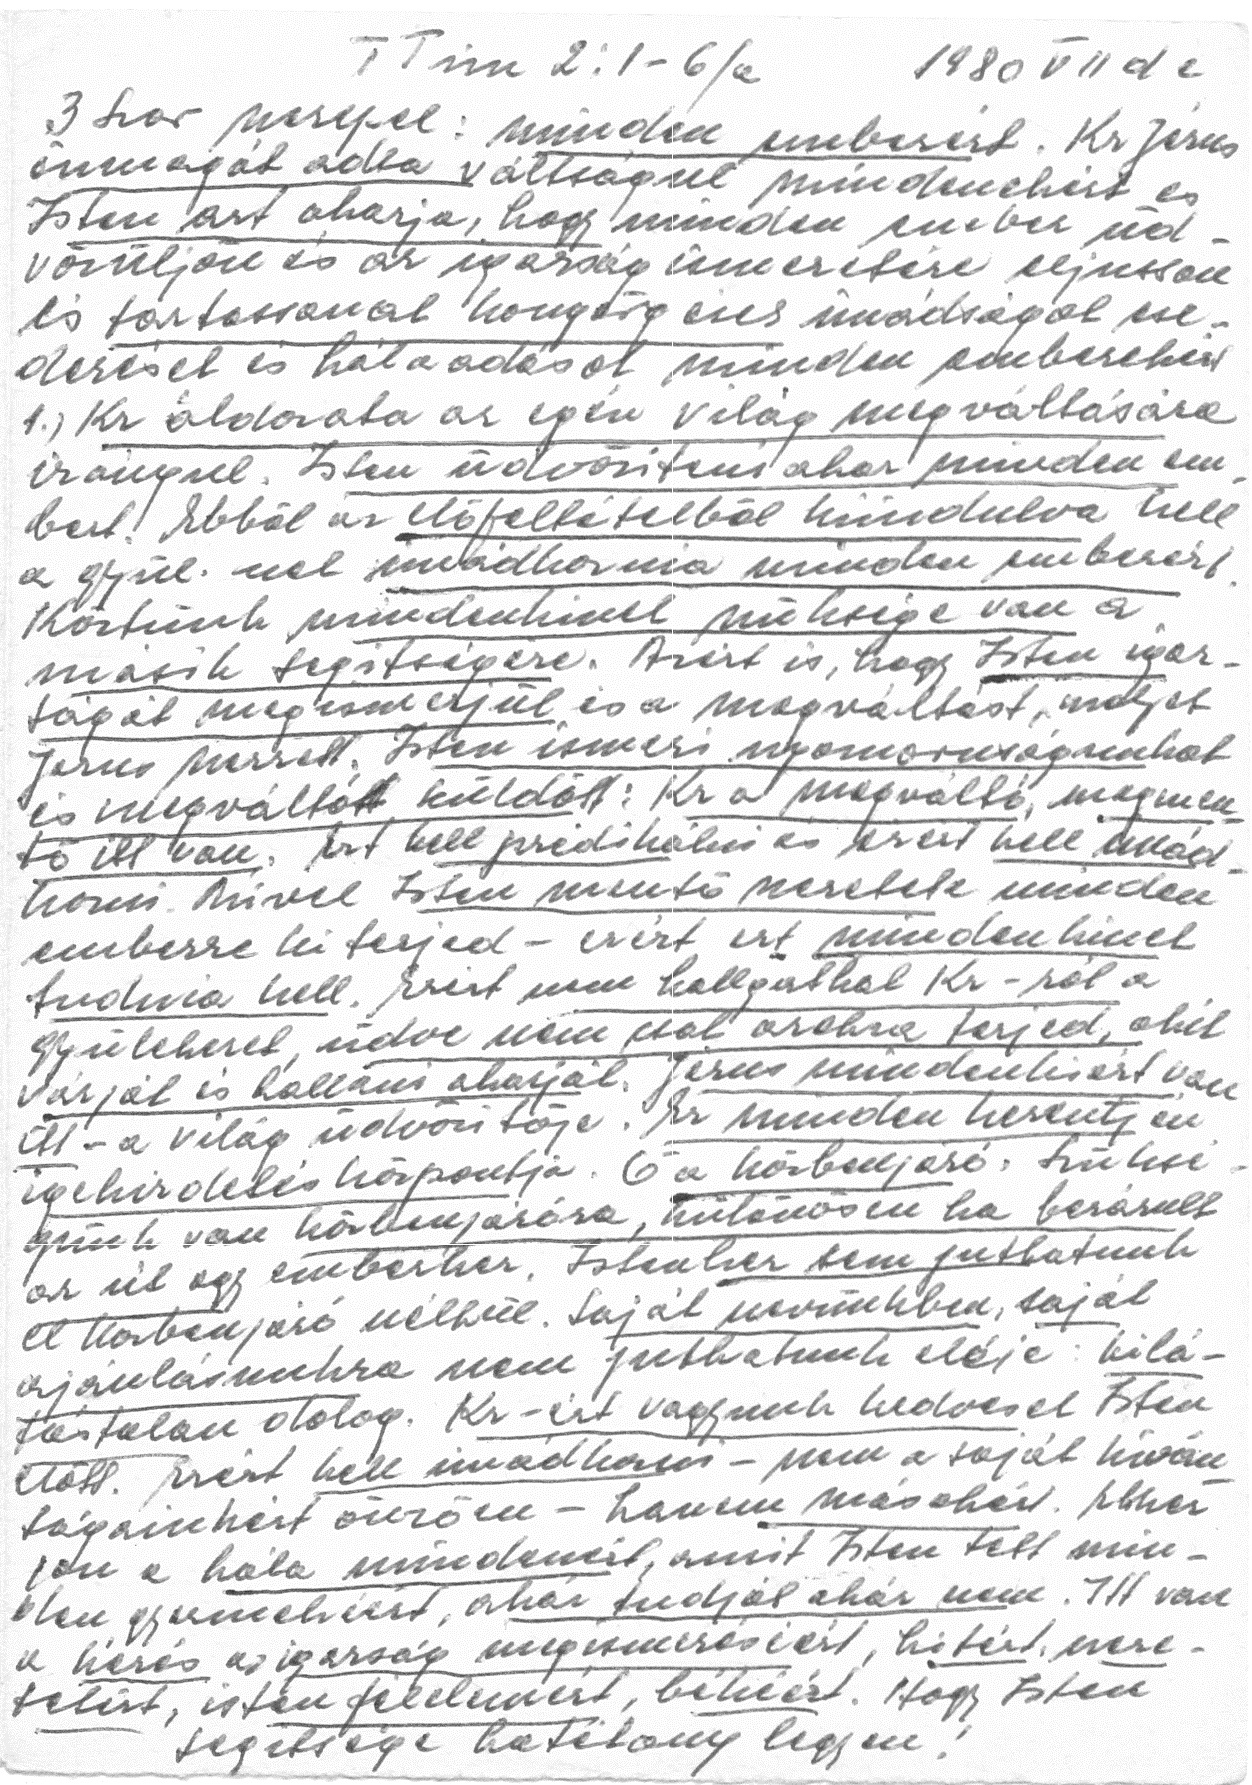 I Tim 2:1-6/a 1980 VII de
3 szor szerepel: minden emberért. Kr Jézus
önmagát adta váltságul mindenekért és
Isten azt akarja, hogy minden ember üd-
vözüljön és az igazság ismeretére eljusson
és tartassanak könyörgések imádságok ese-
dezések és hálaadások minden emberekért
1.) Kr áldozata az egész világ megváltására
irányul. Isten üdvözíteni akar minden em-
bert. Ebből az előfeltételből kiindulva kell
a gyül. nek imádkoznia minden emberért.
Köztünk mindenkinek szüksége van a
másik segítségére. Azért is, hogy Isten igaz-
ságát megismerjük és a megváltást, melyet
Jézus szerzett. Isten ismeri nyomorúságunkat
és megváltót küldött: Kr a megváltó, megmen-
tő itt van. Ezt kell prédikálni és ezért kell imád-
kozni. Mivel Isten mentő szeretete minden
emberre kiterjed - ezért ezt mindenkinek
tudnia kell. Ezért nem hallgathat Kr-ról a
gyülekezet, üdve nem csak azokra terjed, akik
várják és hallani akarják. Jézus mindenkiért van
itt - a világ üdvözítője. Ez minden keresztyén
igehirdetés központja. Ő a közbenjáró. Szüksé-
günk van közbenjáróra, különösen ha bezárult
az út egy emberhez. Istenhez sem juthatunk
el közbenjáró nélkül. Saját nevünkben, saját
ajánlásunkra nem juthatunk eléje: kilá-
tástalan dolog. Kr-ért vagyunk kedvesek Isten
előtt. Ezért kell imádkozni - nem a saját kíván
ságainkért önzően - hanem másokért. Ehhez
jön a hála mindenért, amit Isten tett min-
den gyermekéért, akár tudják akár nem. Itt van
a kérés az igazság megismeréséért, hitért, szere-
tetért, isten félelemért, békéért. Hogy Isten
segítsége hatékony legyen!